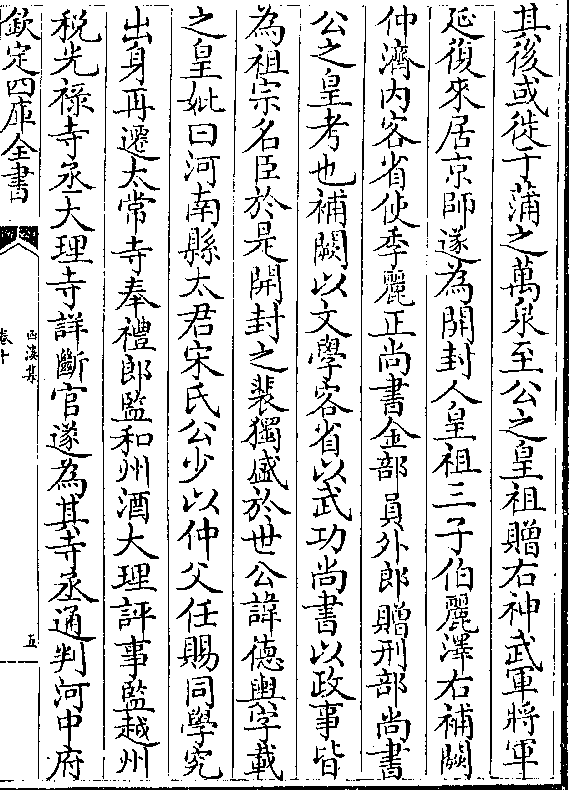 其後或徙于蒲之萬泉至公之皇祖贈右神武軍將軍
延復來居京師遂為開封人皇祖三子伯麗澤右補闕
仲濟内客省使季麗正尚書金部員外郎贈刑部尚書
公之皇考也補闕以文學客省以武功尚書以政事皆
為祖宗名臣於是開封之裴獨盛於世公諱德輿字載
之皇妣曰河南縣太君宋氏公少以仲父任賜同學究
出身再遷太常寺奉禮郎監和州酒大理評事監越州
税光禄寺丞大理寺詳斷官遂為其寺丞通判河中府
欽定四庫全書
西溪集
卷十
五